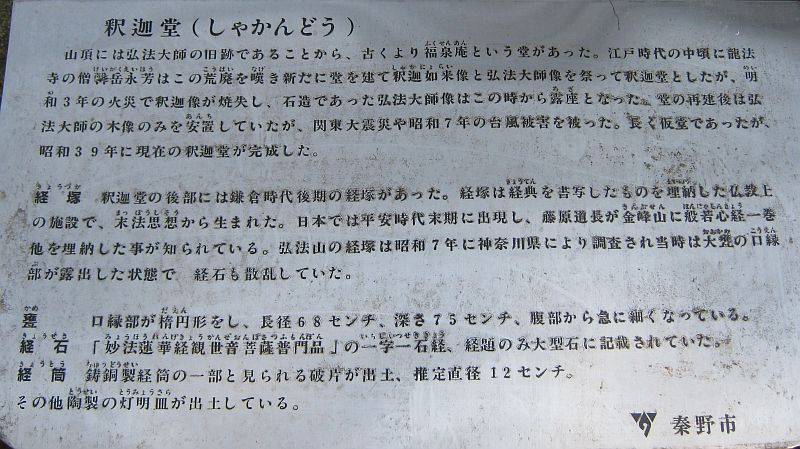 釈迦堂(しゃかんどう)
山頂には弘法大師の旧跡であることから、古くより福泉庵という堂があった。江戸時代の中頃に龍法
寺の僧馨岳永芳はこの荒廃を嘆き新たに堂を建て釈迦如来像と弘法大師像を祭って釈迦堂としたが、明
和3年の火災で釈迦像が焼失し、石造であった弘法大師像はこの時から露座となった。堂の再建後は弘
法大師の木像のみを安置していたが、関東大震災や昭和7年の台風被害を被った。長く仮堂であったが、
昭和39年に現在の釈迦堂が完成した。
経塚 釈迦堂の後部には鎌倉時代後期の経塚があった。経塚は経典を書写したものを埋納した仏教上
の施設で、末法思想から生まれた。日本では平安時代末期に出現し、藤原道長が金峰山に般若心経一巻
他を埋納した事が知られている。弘法山の経塚は昭和7年に神奈川県により調査され当時は大甕の口縁
部が露出した状態で 経石も散乱していた。
甕 口縁部が楕円形をし、長径68センチ、深さ75センチ、腹部から急に細くなっている。
経石 「妙法蓮華経観世音菩薩普門品」の一字一石経、経題のみ大型石に記載されていた。
経筒 鋳銅製経筒の一部と見られる破片が出土、推定直径12センチ。
その他陶製の灯明皿が出土している。
秦野市